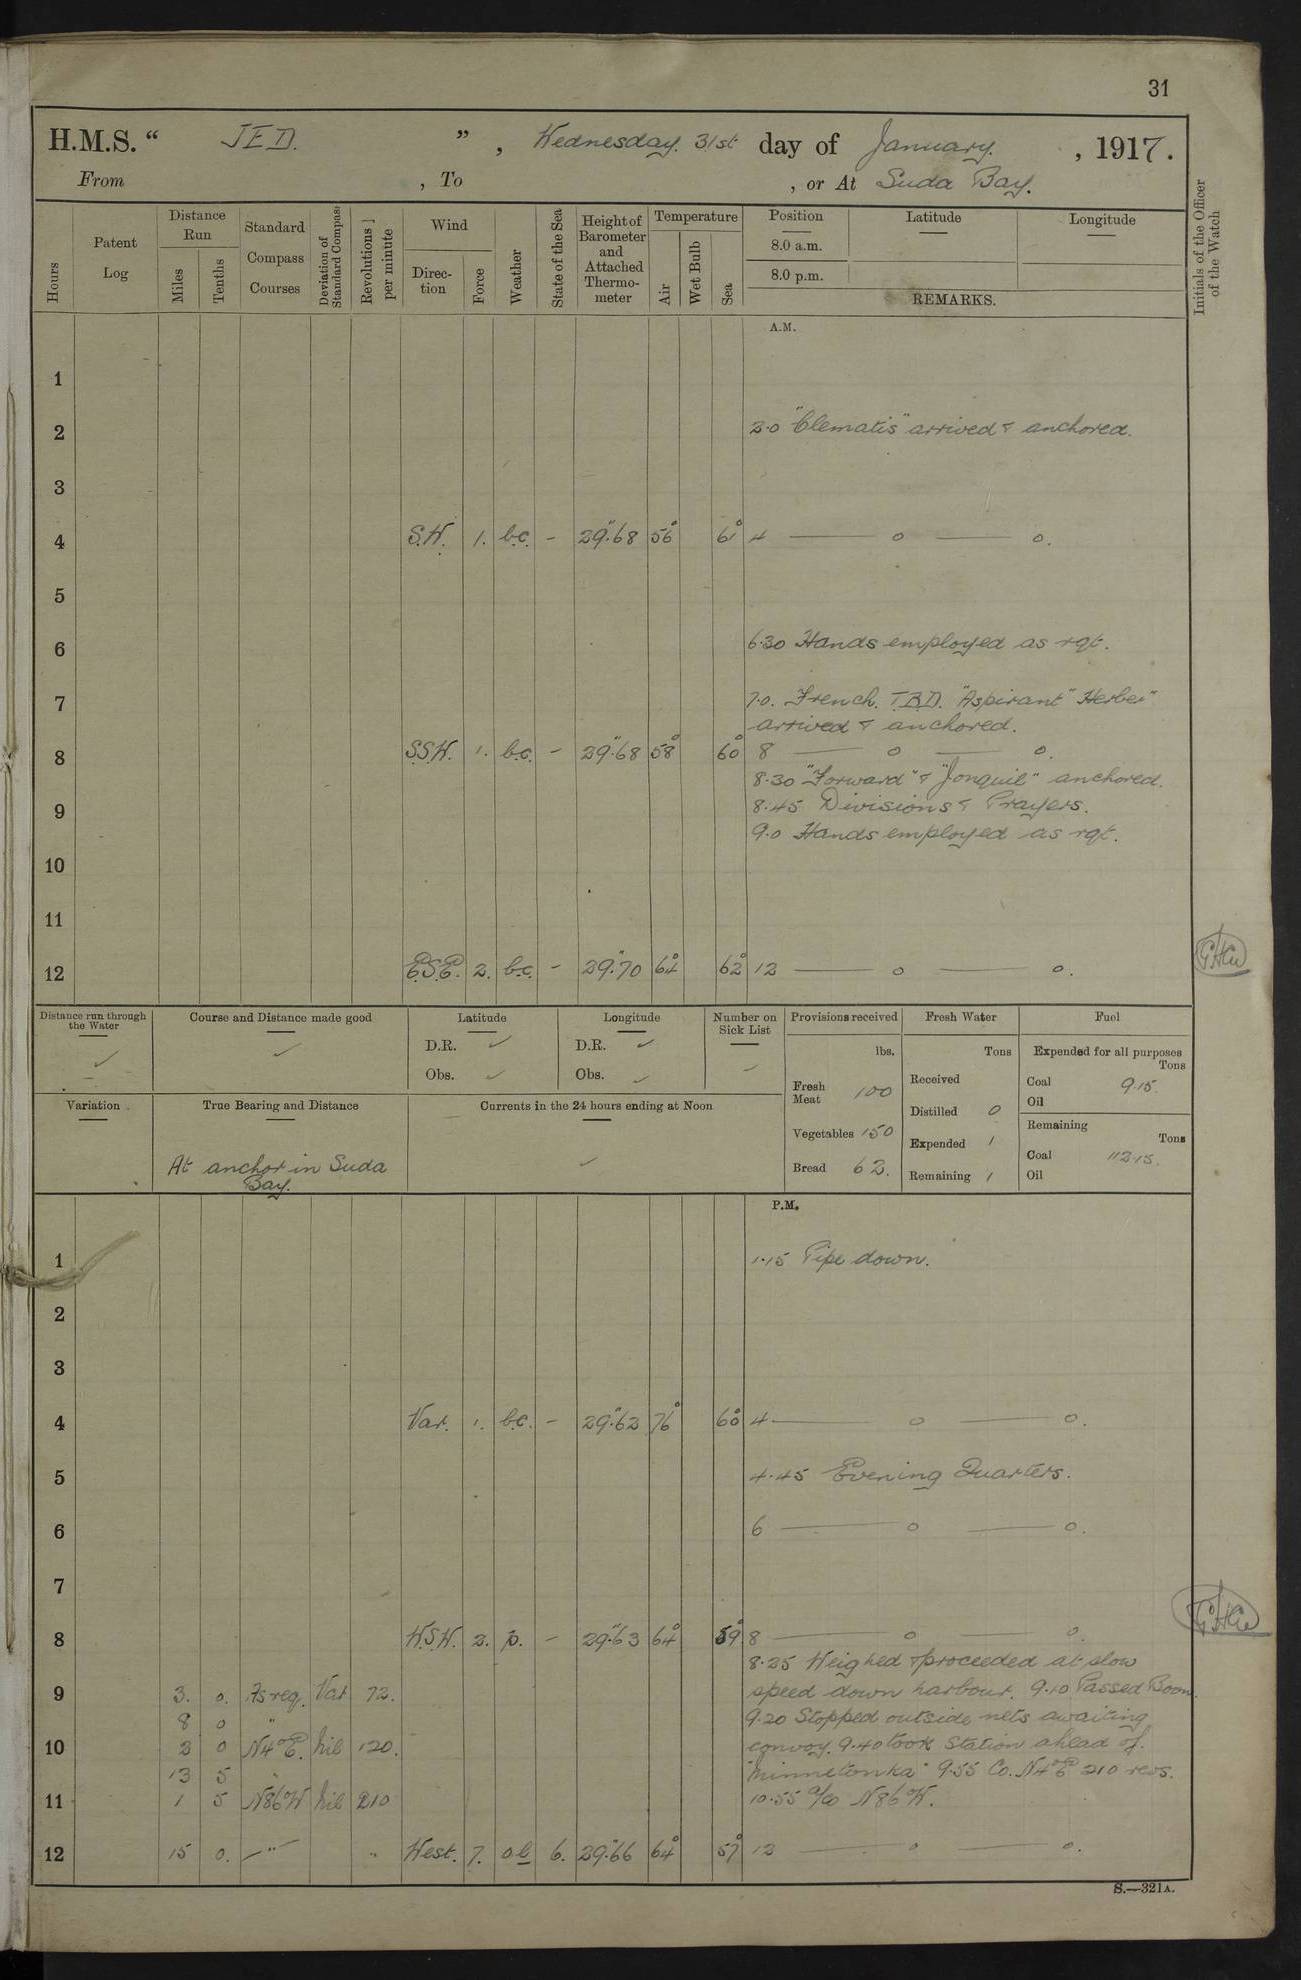 31
H.M.S. “ JED. ” , Wednesday. 31st day of January. , 1917.
From , To , or At Suda Bay.
Hours
Patent Log
Distance Run
Miles
Tenths
Standard Compass Courses
Deviation of Standard Compass
Revolutions per minute
Wind
Direction
Force
Weather
State of the Sea
Height of Barometer and Attached Thermometer
Temperature
Air
Wet Bulb
Sea
Position Latitude Longitude
8.0 a.m.
8.0 p.m.
REMARKS.
Initials of the Officer of the Watch
A.M.
1
2 2.0 "Clematis" arrived & anchored.
3
4 S.W. 1. b.c. - 29".68 56° 61° 4 —— o —— o.
5
6 6.30 Hands employed as rqt.
7 7.0. French. T.B.D. "Aspirant" Herber"
arrived & anchored.
8 S.S.W. 1. b.c. - 29".68 58° 60° 8 —— o —— o.
8.30 "Forward" & "Jonquil" anchored.
9 8.45 Divisions & Prayers.
9.0 Hands employed as rqt.
10
11
12 E.S.E. 2. b.c - 29".70 64° 62° 12 —— o —— o.
Distance run through the Water
Course and Distance made good
Latitude
D.R. ✓
Obs. ✓
Longitude
D.R. ✓
Obs. ✓
Number on Sick List
Provisions received
lbs.
Fresh Meat 100
Vegetables 150
Bread 62.
Fresh Water
Tons
Received
Distilled 0
Expended 1
Remaining 1
Fuel
Expended for all purposes
Tons
Coal 9.15.
Oil
Remaining
Tons
Coal 112.15.
Oil
Variation
True Bearing and Distance
At anchor in Suda
Bay.
Currents in the 24 hours ending at Noon
✓
P.M.
1 1.15 Pipe down.
2
3
4 Var. 1. b.c. - 29".62 76° 60° 4 —— o —— o.
5 4.45 Evening Quarters.
6 6 —— o —— o.
7
8 W.S.W. 2. p. - 29".63 64° 59° 8 —— o —— o.
8.25 Weighed & proceeded at slow
9 3. 0. As req. Var 72. speed down harbour. 9.10 Passed Boom.
8 0 " 9.20 Stopped outside nets awaiting
10 2 0 N4°E. Nil 120. convoy. 9.40 took station ahead of.
13 5 " "Minnetonka" 9.55 Co. N4°E 210 revs.
11 1 5 N86°W Nil 210 10.55 a/co N86°W.
12 15 0. —"— " West. 7. oq 6. 29".66 64° 57° 12 —— o —— o.
S.—321A.